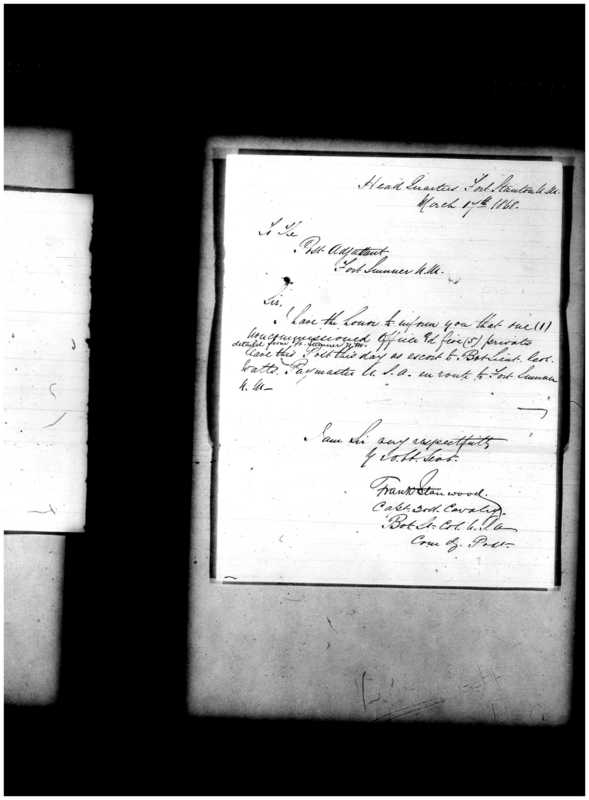 Head Quarters Fort Stanton N.M.
March 17th 186
To The
Post Adjutant
Fort Sumner N.M.
Sir.
I have the honor to inform you that one (1)
noncommissioned Officer & five (5) privates
detailed from Ft. Sumner N.M.
leave this Post this day as escort to Bvt. Lieut.
Watts. Paymaster U.S.A. en route to Fort Sumner
N.M—
I am Sir very respectfully
Y r ob. t. Serv.
Frank Stanwood.
Capt. 3rd. Cavalry.
Bvt Lt. Col. U.S.A
Com dg. Post.